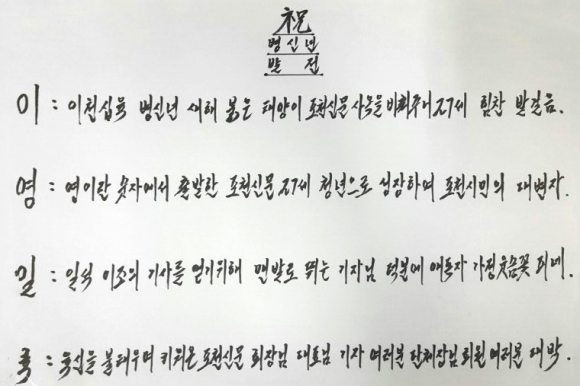 祝
병신년
발전
이 : 이천십육 병신년 새해 붉은 태양이 포천신문 사옥을 비춰주니 27세 힘찬 발걸음.
영 : 영이란 숫자에서 출발한 포천신문 27세 청년으로 성장하여 포천시민의 대변자.
일 : 일석 이조의 기사를 얻기위해 맨발로 뛰는 기자님 덕분에 애독자 가정 웃음꽃 피네.
육 : 육신을 불태우며 키워온 포천신문 회장님 대표님 기자 여러분 단체장님 회원 여러분 대박.